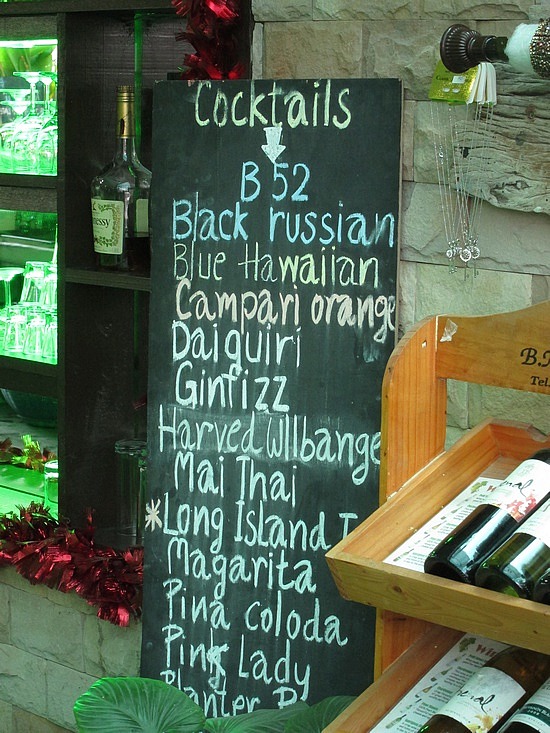 Cocktails
B 52
Black russian
Blue Hawaiian
Campari orange
Daiguiri
Ginfizz
Harved Wllbange
Mai Thai
*Long Island T
Magarita
Pina Coloda
Pink Lady
Planter P
nessy
B.
Tel.